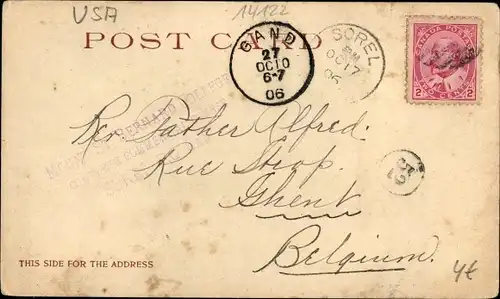 USA
14122
POST CARD
GAND
27
OCTO
6-7
06
SOREL
PM
OC 17
06
CANADA POSTAGE
2 2
TWO CENTS
BERNARD COLLEGE
Rev Father Alfred.
Rue Strop.
Ghent
Belgium.
THIS SIDE FOR THE ADDRESS
4€